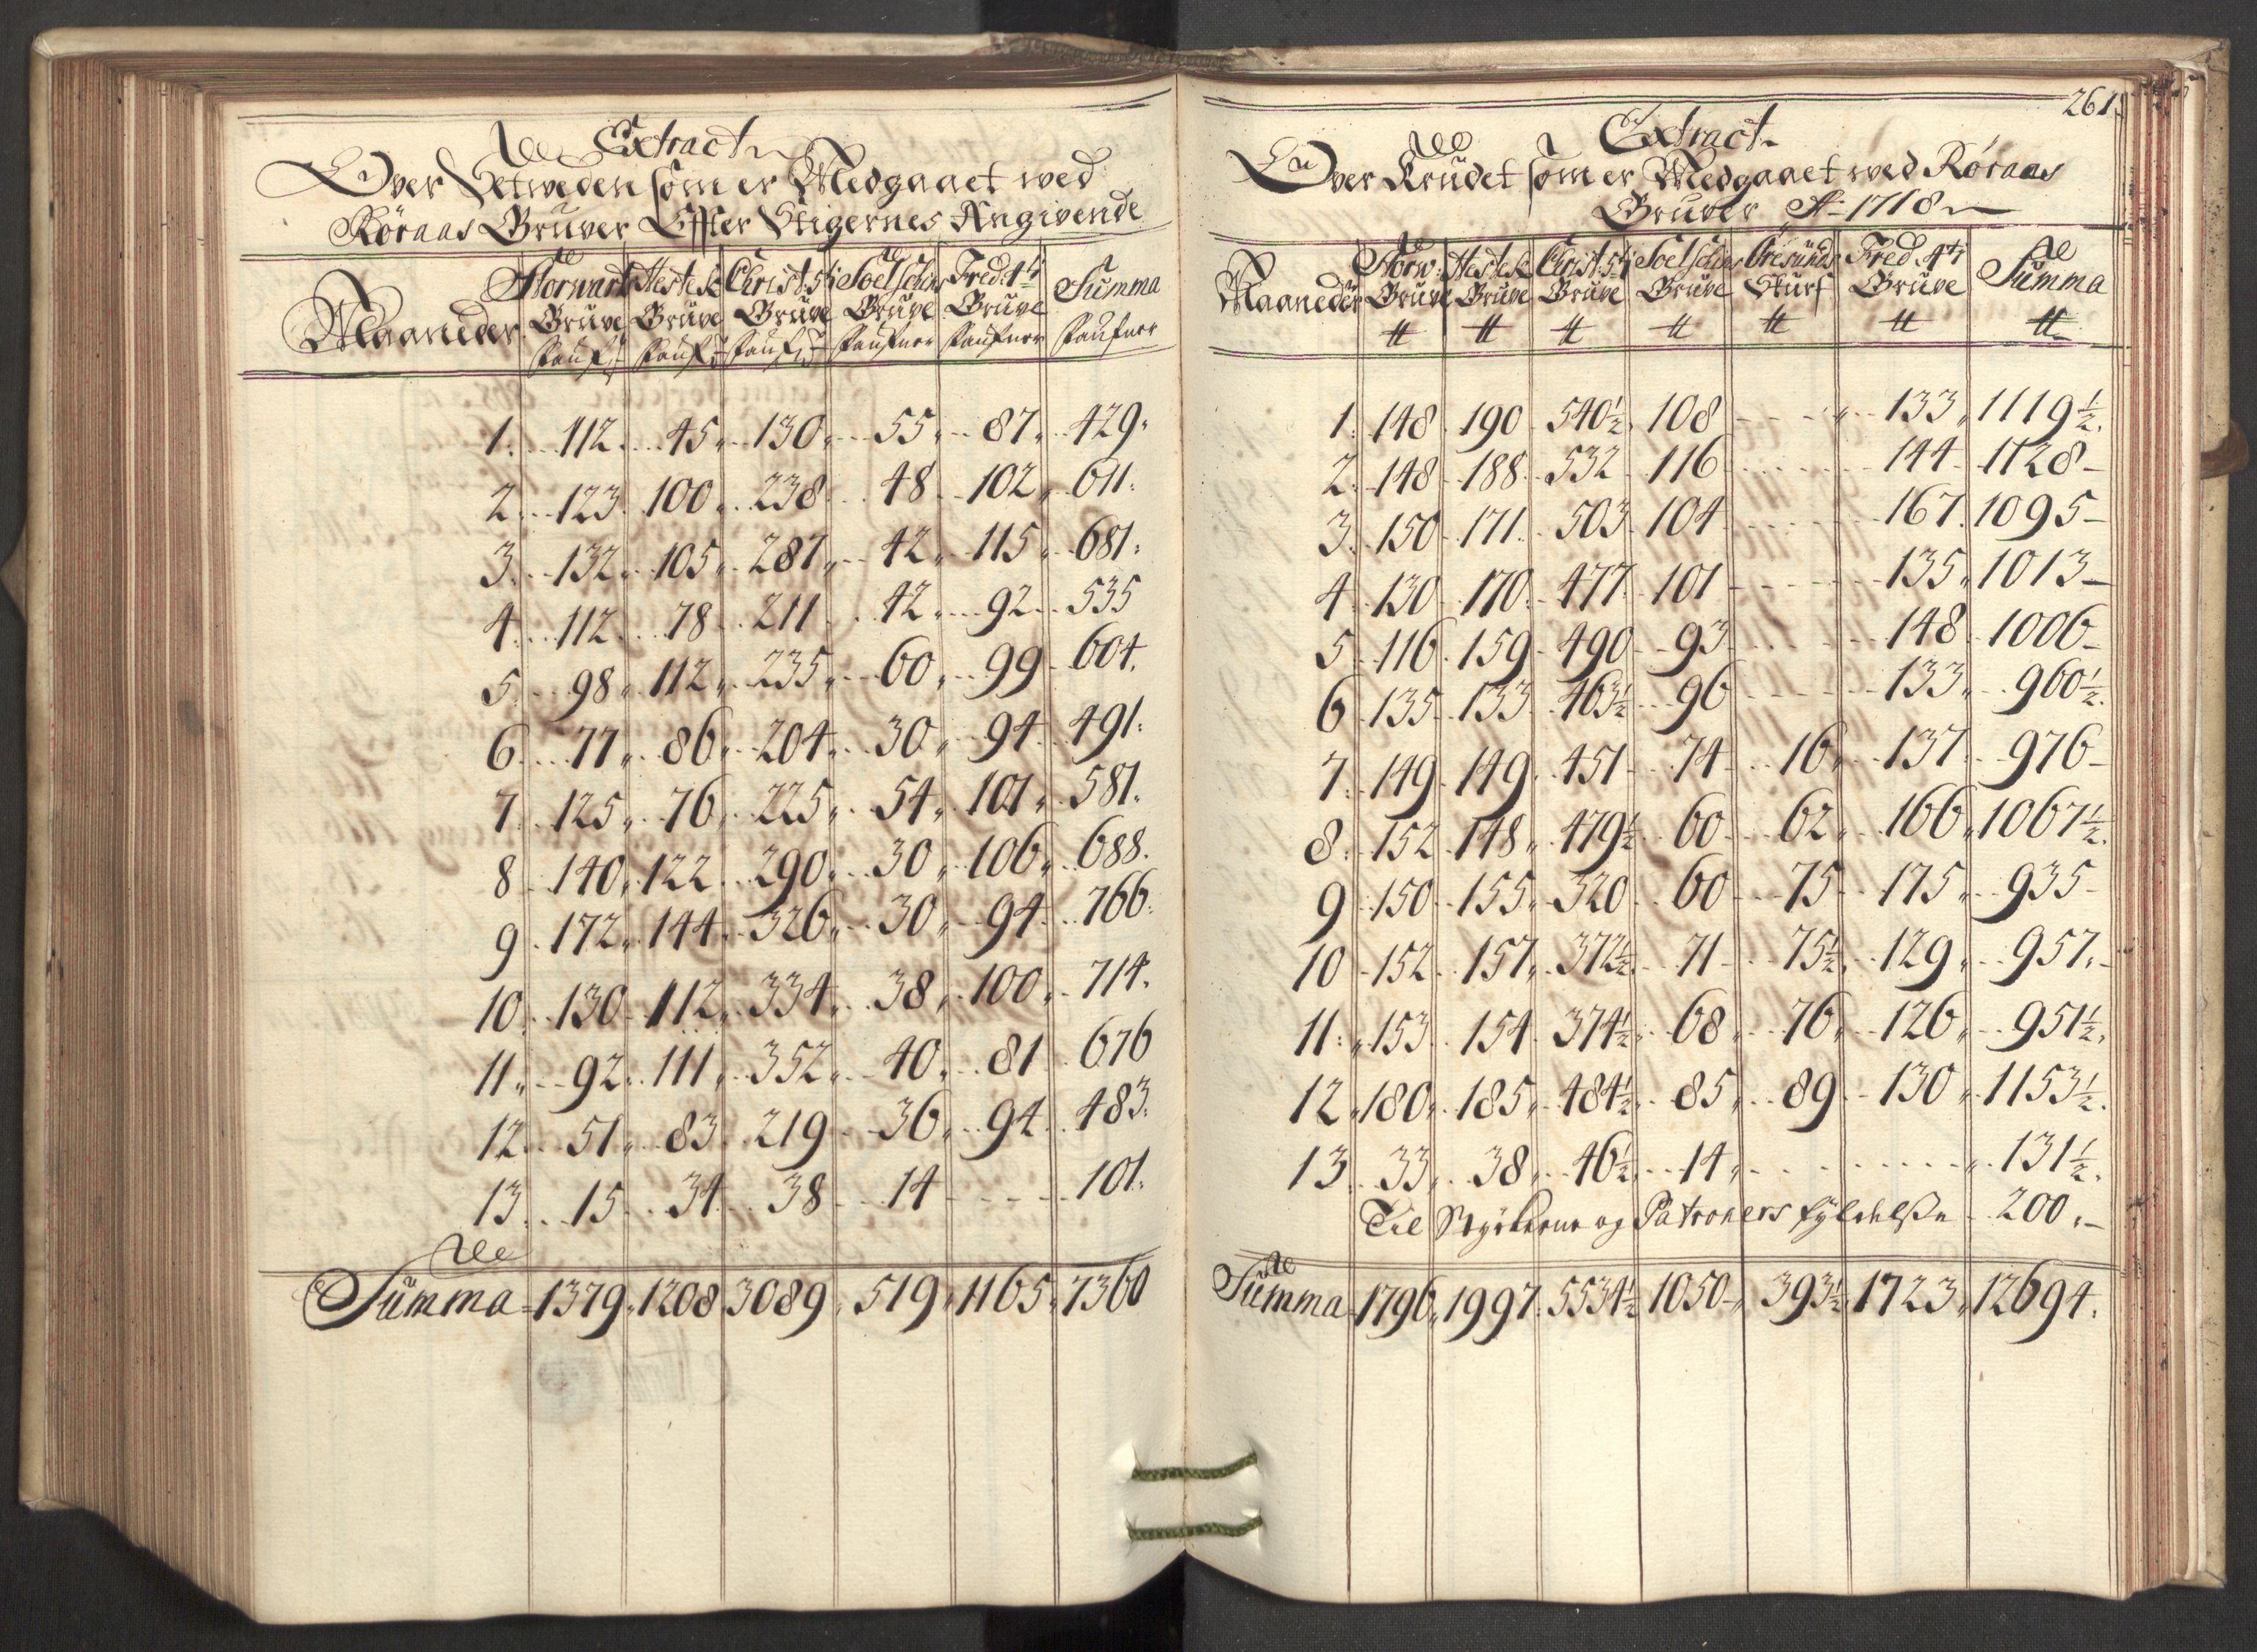 Extract
Over Setweden som er Medgaaet wed
Röraas Gruver Effter Stigernes Angivende
Maaneder Storwart Gruve Hestek Gruve Christ: 5ti Gruve Soelschins Gruve Fred: 4ti Gruve Summa
1. 112 45 130 55 87 429
2 123 100 238 48 102 611
3 132 105 287 42 115 681
4 112 78 211 42 92 535
5 98 112 235 60 99 604
6 77 86 204 30 94 491
7 125 76 225 54 101 581
8 140 122 290 30 106 688
9 172 144 326 30 94 766
10 130 112 334 38 100 714
11 92 111 352 40 81 676
12 51 83 219 36 94 483
13 15 34 38 14 101
Summa 1379 1208 3089 519 1165 7360
261
Extract
Over Krudet som er Medgaaet wed Röraas
Gruver Ao 1718
Maaneder Storw: Gruve Hestek Gruve Christ: 5ti Gruve Soelschins Gruve Öresunds Skurf Fred: 4ti Gruve Summa
℔ ℔ ℔ ℔ ℔ ℔ ℔
1. 148 190 540½ 108 133 1119½
2. 148 188 532 116 144 1128
3. 150 171 503 104 167 1095
4 130 170 477 101 135 1013
5 116 159 490 93 148 1006
6 135 133 463½ 96 133 960½
7 149 149 451 74 16 137 976
8 152 148 479½ 60 62 166 1067½
9 150 155 320 60 75 175 935
10 152 157 372½ 71 75½ 129 957
11 153 154 374½ 68 76 126 951½
12 180 185 484½ 85 89 130 1153½
13 33 38 46½ 14 131½
Til Stykerne og Patroners fyldelse 200
Summa 1796 1997 5534½ 1050 393½ 1723 12694